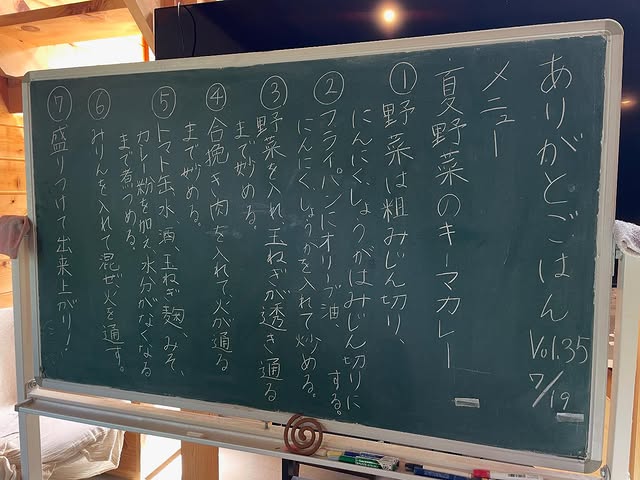 ありがとごはん
Vol.35
7/19
メニュー
夏野菜のキーマカレー
①野菜は粗みじん切り、
にんにく、しょうがはみじん切りに
する。
②フライパンにオリーブ油、
にんにく、しょうがを入れて炒める。
③野菜を入れ玉ねぎが透き通る
まで炒める。
④合挽き肉を入れて火が通る
まで炒める。
⑤トマト缶、水、酒、玉ねぎ麹、みそ、
カレー粉を加え水分がなくなる
まで煮つめる。
⑥みりんを入れて混ぜ、火を通す。
⑦盛りつけて出来上がり!